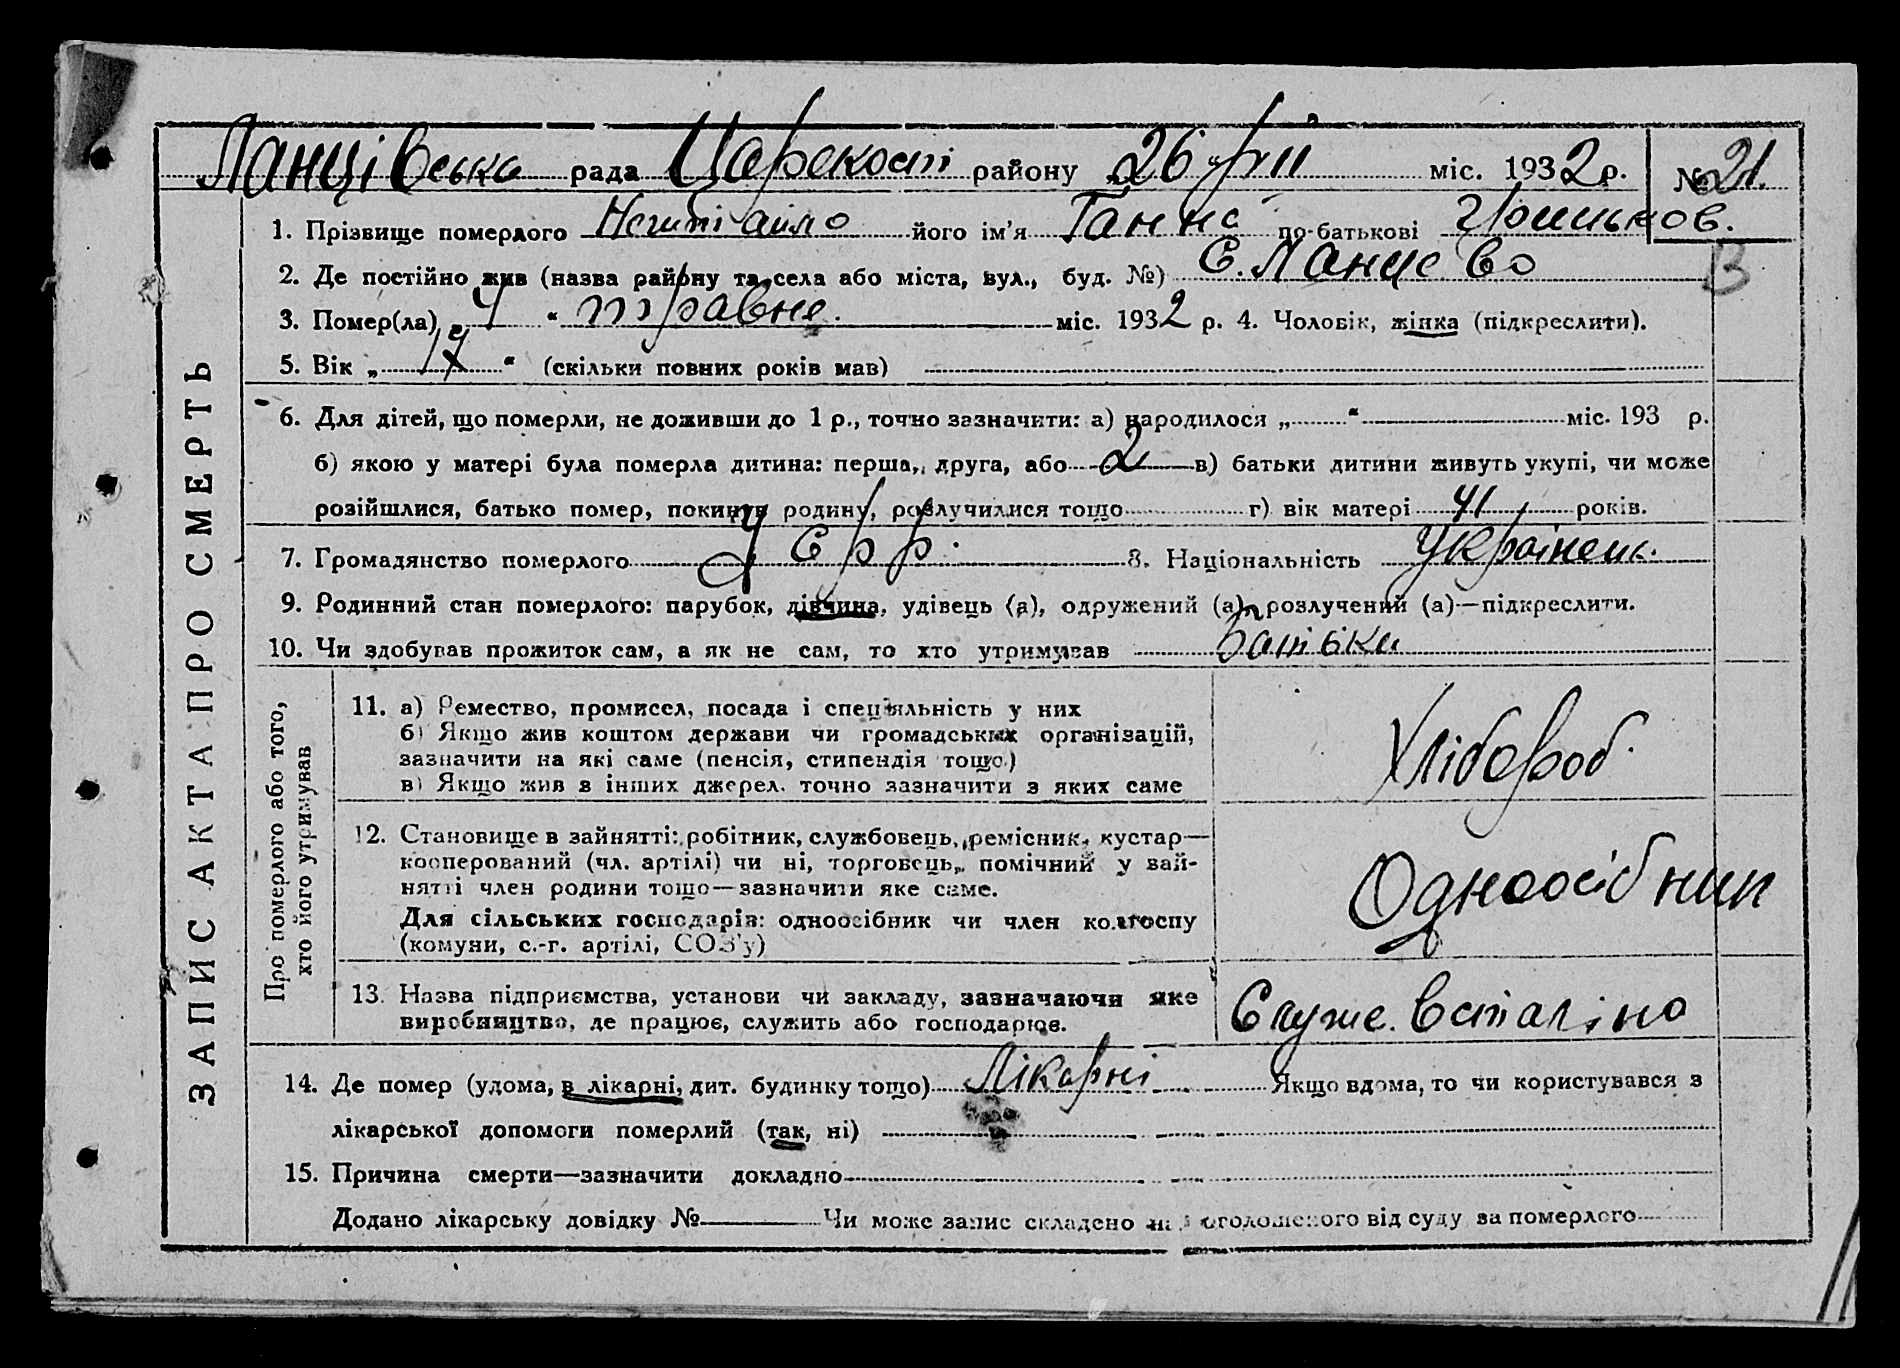 Ланцівська рада Царекост району „26" VII міс. 1932 р. № 21.
1. Прізвище померлого його ім'я Ганна по-батькові
2. Де постійно жив (назва району та села або міста, вул., буд. №) С. Ланцево
3. Помер(ла) „4" травня. міс. 1932 р. 4. Чоловік, жінка (підкреслити).
5. Вік „17" (скільки повних років мав)
6. Для дітей, що померли, не доживши до 1 р., точно зазначити: а) народилося „ " міс. 193 р.
б) якою у матері була померла дитина: перша, друга, або 2 в) батьки дитини живуть укупі, чи може
розійшлися, батько помер, покинув родину, розлучилися тощо г) вік матері 41 років.
7. Громадянство померлого УСРР. 8. Національність Українец.
9. Родинний стан померлого: парубок, дівчина, удівець (а), одружений (а), розлучений (а)—підкреслити.
10. Чи здобував прожиток сам, а як не сам, то хто утримував Батьки
ЗАПИС АКТА ПРО СМЕРТЬ
Про померлого або того,
хто його утримував
11. а) Ремество, промисел, посада і спеціяльність у них
б) Якщо жив коштом держави чи громадських організацій,
зазначити на які саме (пенсія, стипендія тощо)
в) Якщо жив з інших джерел, точно зазначити з яких саме
Хлібороб.
12. Становище в зайнятті: робітник, службовець, ремісник, кустар—
кооперований (чл. артілі) чи ні, торговець, помічний у зай-
нятті член родини тощо—зазначити яке саме.
Для сільських господарів: одноосібник чи член колгоспу
(комуни, с.-г. артілі, СОЗ'у)
Одноосібник
13. Назва підприємства, установи чи закладу, зазначаючи яке
виробництво, де працює, служить або господарює.
14. Де помер (удома, в лікарні, дит. будинку тощо) Лікарні Якщо вдома, то чи користувався з
лікарської допомоги померлий (так, ні)
15. Причина смерти—зазначити докладно
Додано лікарську довідку № Чи може запис складено на оголошеного від суду за померлого